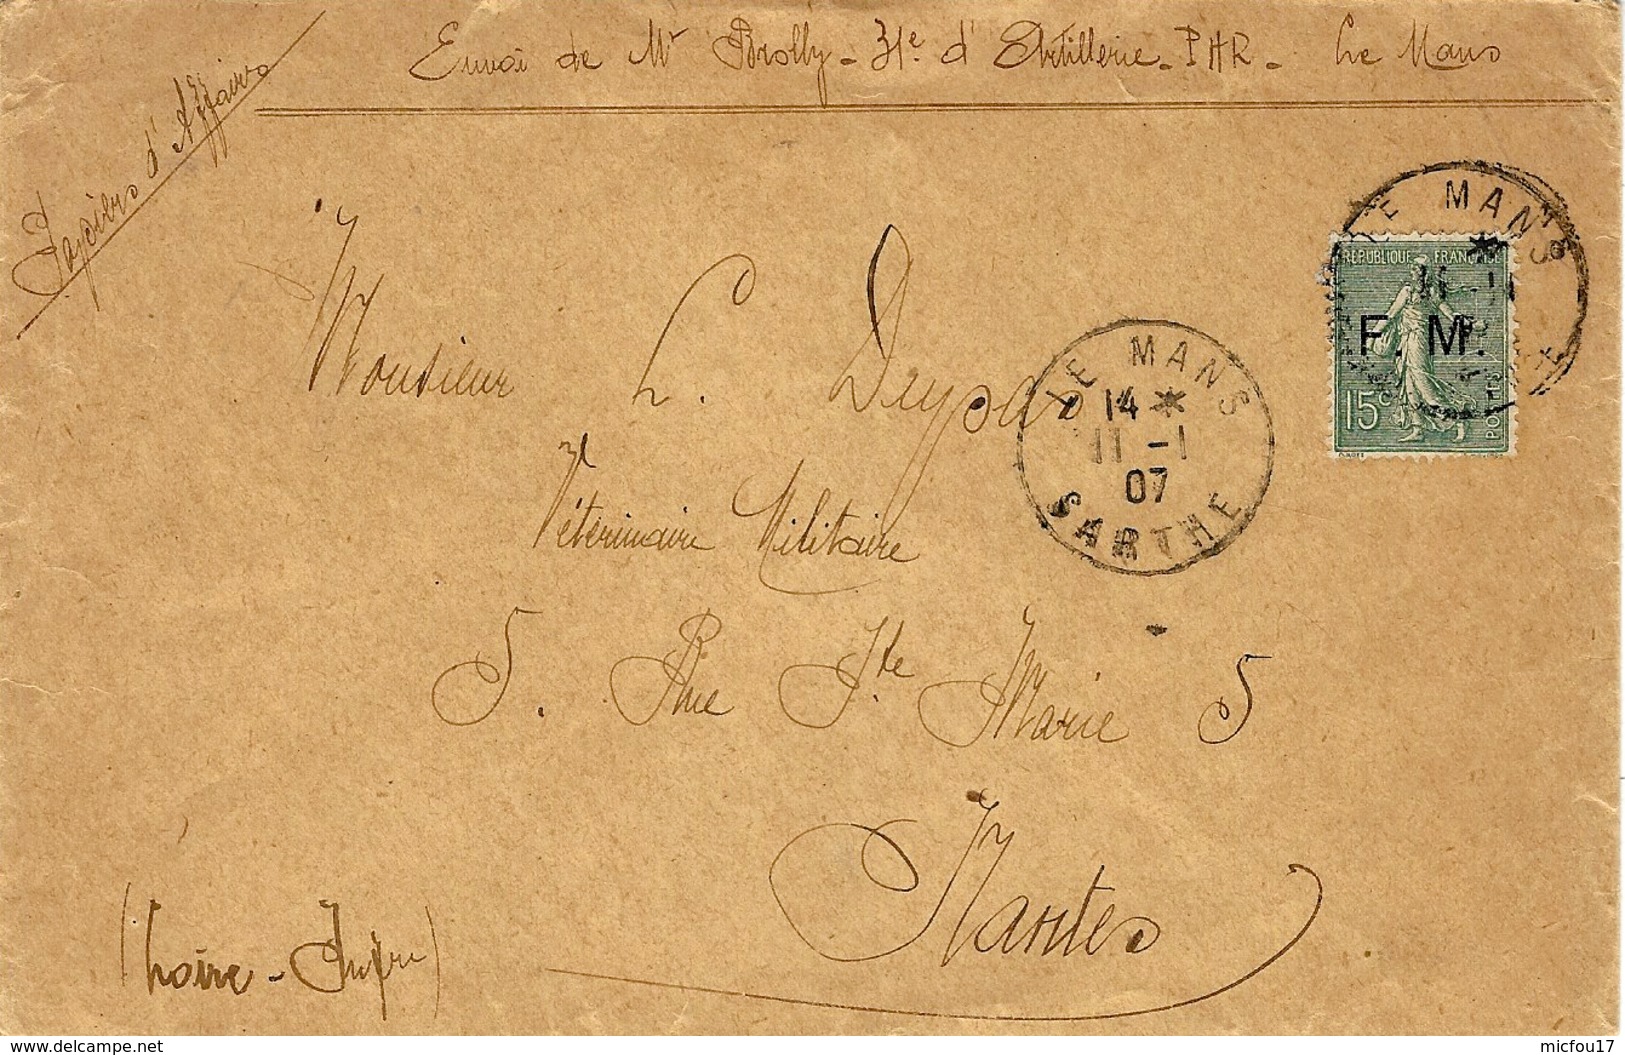 Envoi de Mr Brolly - 31e d'Artillerie - PHR - Le Mans
Papiers d'Affaires
LE MANS
RÉPUBLIQUE FRANÇAISE
11 -1
F. M.
15c
POSTES
Monsieur L. Deysas
LE MANS
14 *
11 -1
07
SARTHE
Vétérinaire Militaire
5. Rue Ste Marie 5
Nantes
(Loire-Infre)
www.delcampe.net
micfou17